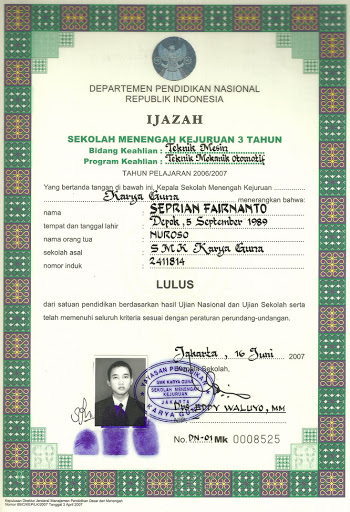 DEPARTEMEN PENDIDIKAN NASIONAL
REPUBLIK INDONESIA
IJAZAH
SEKOLAH MENENGAH KEJURUAN 3 TAHUN
Bidang Keahlian : Teknik Mesin
Program Keahlian : Teknik Mekanik Otomotif
TAHUN PELAJARAN 2006/2007
Yang bertanda tangan di bawah ini, Kepala Sekolah Menengah Kejuruan
Karya Guna menerangkan bahwa:
nama : SEPRIAN FAIRNANTO
tempat dan tanggal lahir : Depok, 5 September 1989
nama orang tua : NUROSO
sekolah asal : SMK Karya Guna
nomor induk : 2411814
LULUS
dari satuan pendidikan berdasarkan hasil Ujian Nasional dan Ujian Sekolah serta
telah memenuhi seluruh kriteria sesuai dengan peraturan perundang-undangan.
Jakarta, 16 Juni 2007
Kepala Sekolah,
YAYASAN PENDIDIKAN
SMK KARYA GUNA
SEKOLAH MENENGAH
KEJURUAN
JAKARTA
KARYA GUNA
Drs. EDDY WALUYO, MM
No. DN-01 Mk 0008525
Keputusan Direktur Jenderal Manajemen Pendidikan Dasar dan Menengah
Tanggal 3 April 2007